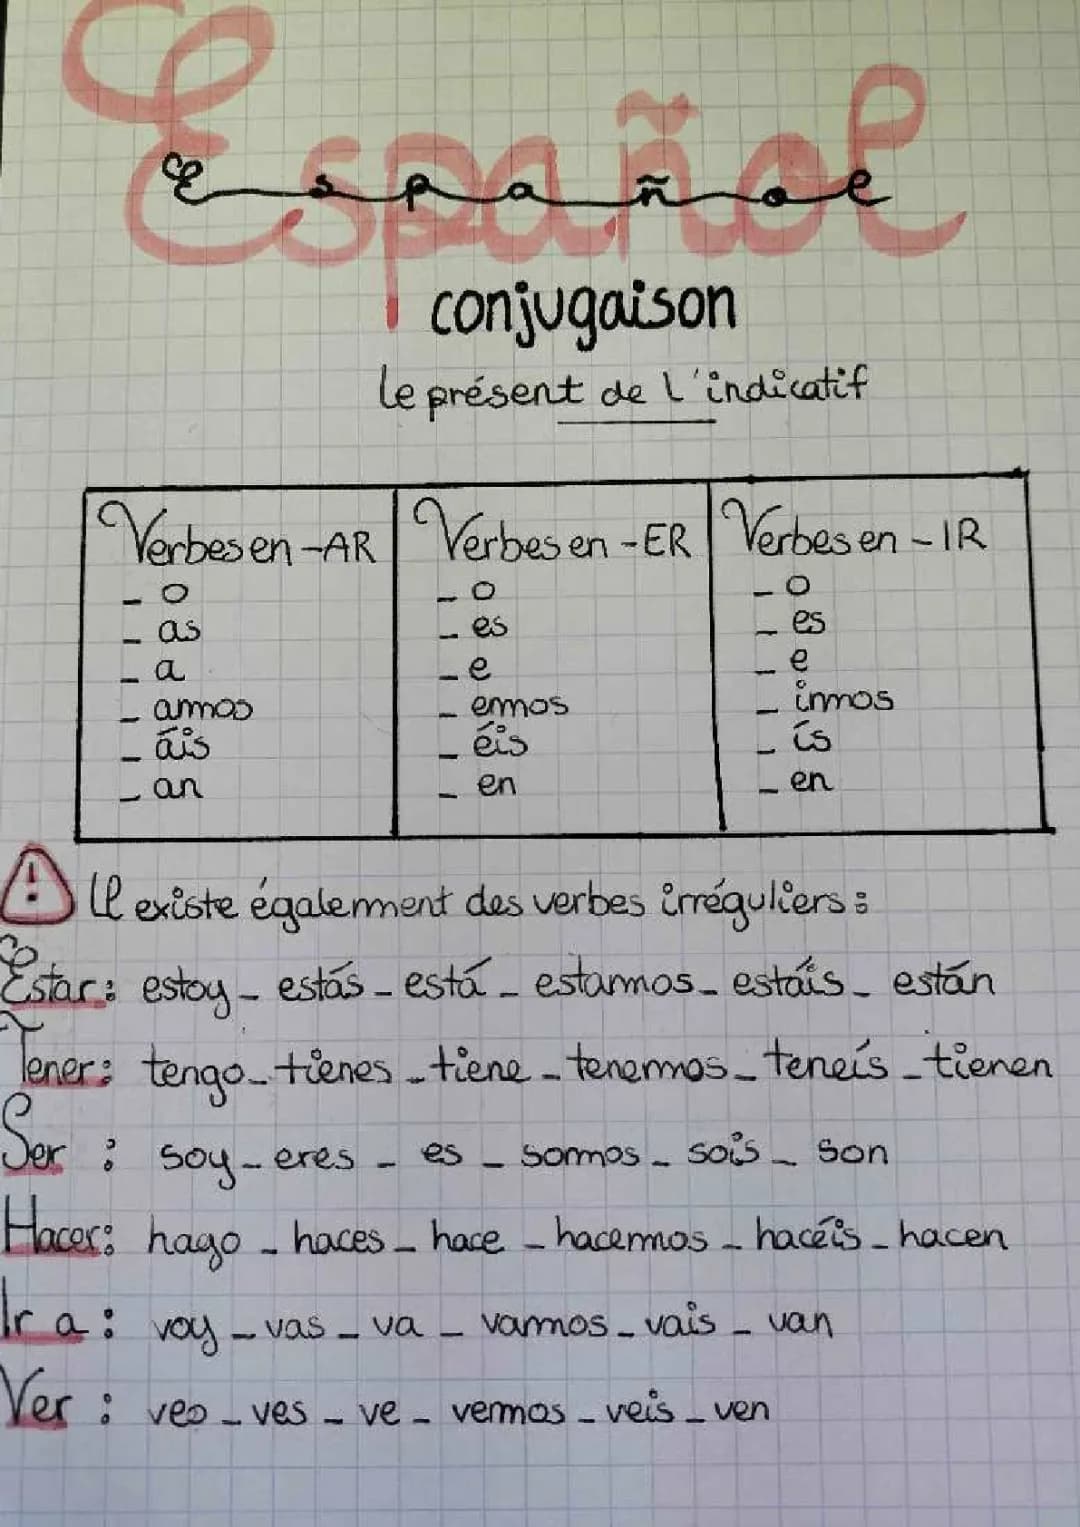 Español
Español
conjugaison
le présent de l'indicatif
Verbes en -AR
- o
- as
- a
- amos
- áis
- an
Verbes en -ER
- o
- es
- e
- emos
- éis
- en
Verbes en - IR
- o
- es
- e
- imos
- ís
- en
! Il existe également des verbes irréguliers :
Estar : estoy - estás - está - estamos - estáis - están
Tener : tengo - tienes - tiene - tenemos - teneís - tienen
Ser : soy - eres - es - somos - sois - son
Hacer : hago - haces - hace - hacemos - hacéis - hacen
Ir a : voy - vas - va - vamos - vais - van
Ver : veo - ves - ve - vemos - veis - ven